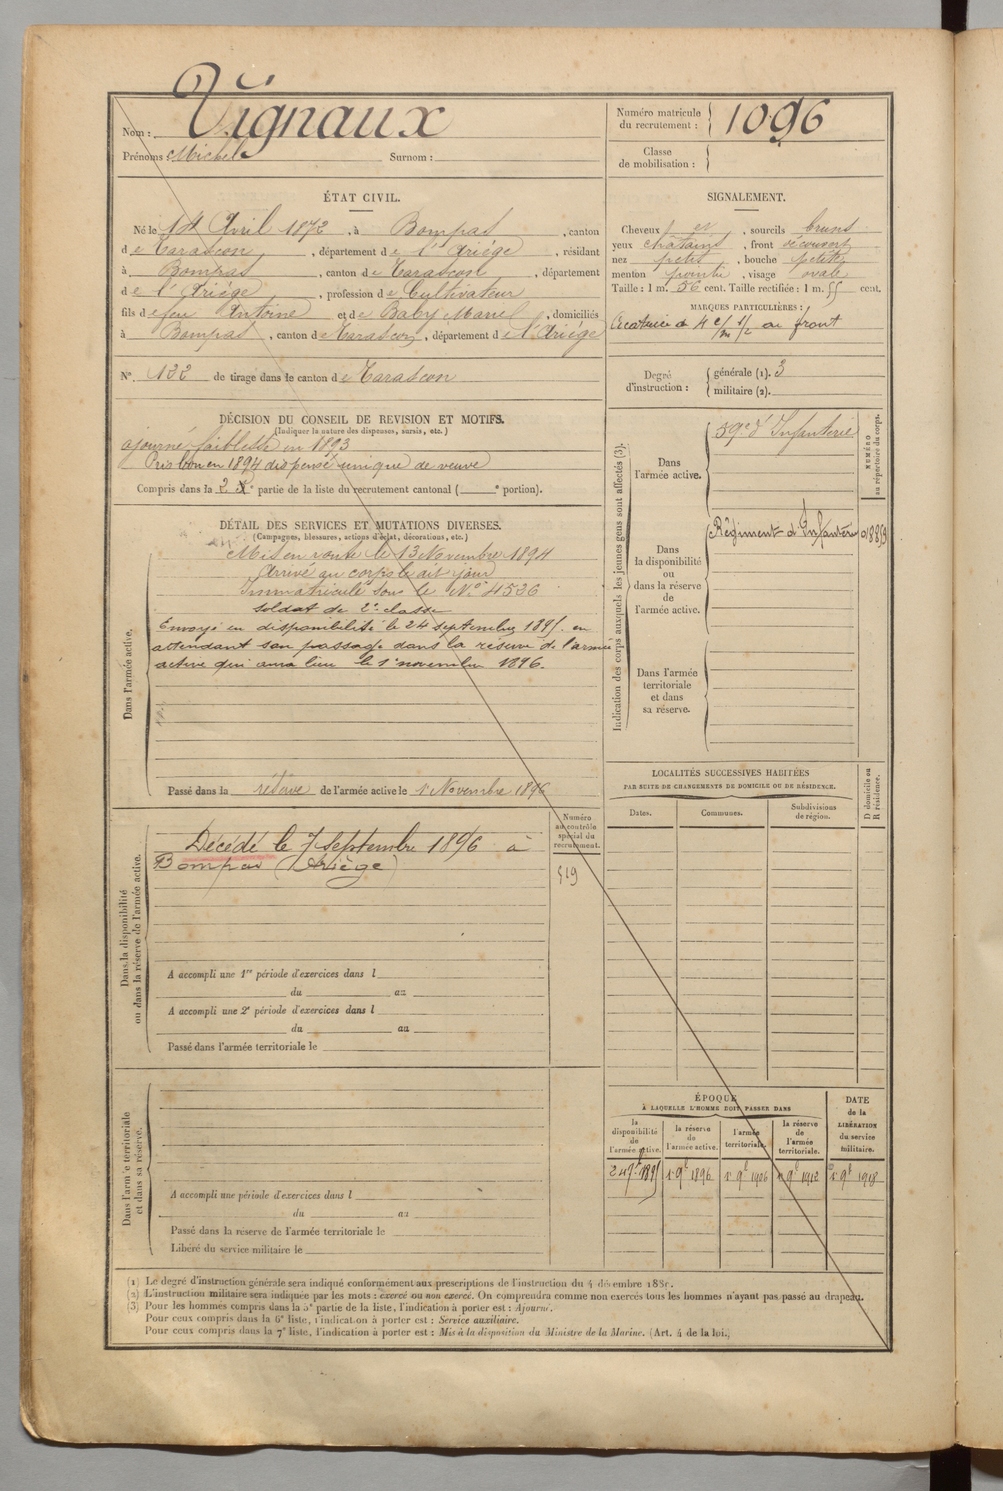 Nom : Vignaux
Prénoms : Michel Surnom :
Numéro matricule du recrutement : 1096
Classe de mobilisation :
ÉTAT CIVIL.
Né le 14 Avril 1872, à Bompas, canton
de Tarascon, département de l'Ariège, résidant
à Bompas, canton de Tarascon, département
de l'Ariège, profession de Cultivateur
fils de feu Antoine et de Baby Marie, domiciliés
à Bompas, canton de Tarascon, département de l'Ariège
N° 122 de tirage dans le canton de Tarascon
SIGNALEMENT.
Cheveux et, sourcils bruns
yeux châtains, front découvert
nez petit, bouche petite
menton pointu, visage ovale
Taille : 1 m. 56 cent. Taille rectifiée : 1 m. 55 cent.
MARQUES PARTICULIÈRES :
Cicatrice de 4 c/m 1/2 au front
Degré d'instruction : générale (1). 3
militaire (2).
DÉCISION DU CONSEIL DE REVISION ET MOTIFS.
(Indiquer la nature des dispenses, sursis, etc.)
ajourné faiblesse en 1893
Pris bon en 1894 dispensé unique de veuve
Compris dans la 2 e partie de la liste du recrutement cantonal ( e portion).
DÉTAIL DES SERVICES ET MUTATIONS DIVERSES.
(Campagnes, blessures, actions d'éclat, décorations, etc.)
Dans l'armée active.
Mis en route le 13 Novembre 1894
Arrivé au corps le dit jour
Immatriculé sous le N° 4536
soldat de 2e classe
Envoyé en disponibilité le 24 septembre 1895. en
attendant son passage dans la réserve de l'armée
active qui aura lieu le 1er novembre 1896.
Passé dans la réserve de l'armée active le 1er Novembre 1896
Indication des corps auxquels les jeunes gens sont affectés (3).
NUMÉRO au répertoire du corps.
Dans l'armée active.
59e d'Infanterie
Dans la disponibilité ou dans la réserve de l'armée active.
Régiment d'Infanterie
Dans l'armée territoriale et dans sa réserve.
LOCALITÉS SUCCESSIVES HABITÉES
PAR SUITE DE CHANGEMENTS DE DOMICILE OU DE RÉSIDENCE.
Dates. Communes. Subdivisions de région.
D domicile ou R résidence.
Dans la disponibilité ou dans la réserve de l'armée active.
Numéro au contrôle spécial du recrutement.
519
Décédé le 7 septembre 1896 à
Bompas (Ariège)
A accompli une 1re période d'exercices dans l
du au
A accompli une 2e période d'exercices dans l
du au
Passé dans l'armée territoriale le
Dans l'armée territoriale et dans sa réserve.
A accompli une période d'exercices dans l
du au
Passé dans la réserve de l'armée territoriale le
Libéré du service militaire le
ÉPOQUE
À LAQUELLE L'HOMME DOIT PASSER DANS
la disponibilité de l'armée active.
la réserve de l'armée active.
l'armée territoriale.
la réserve de l'armée territoriale.
DATE de la LIBÉRATION du service militaire.
24 7bre 1895 1er 9bre 1896 1er 9bre 1906 1er 9bre 1912 1er 9bre 1918
(1) Le degré d'instruction générale sera indiqué conformément aux prescriptions de l'instruction du 4 décembre 188
(2) L'instruction militaire sera indiquée par les mots : exercé ou non exercé. On comprendra comme non exercés tous les hommes n'ayant pas passé au drapeau.
(3) Pour les hommes compris dans la 5e partie de la liste, l'indication à porter est : Ajourné.
Pour ceux compris dans la 6e liste, l'indication à porter est : Service auxiliaire.
Pour ceux compris dans la 7e liste, l'indication à porter est : Mis à la disposition du Ministre de la Marine. (Art. 4 de la loi.)